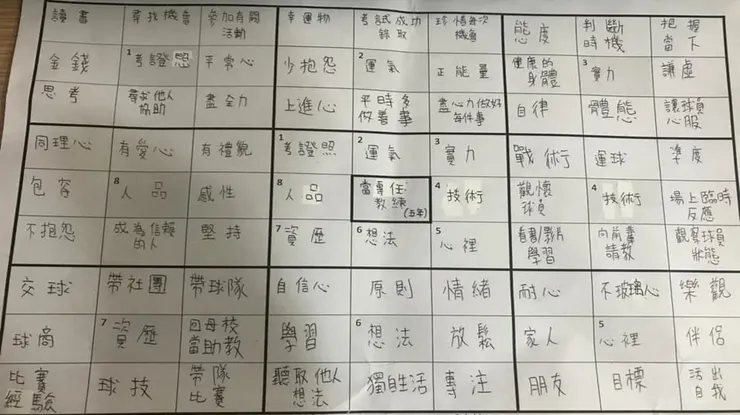 讀書 尋找機會 參加有關活動 幸運物 考試成功錄取 珍惜每次機會 態度 判斷時機 把握當下
金錢 1考證照 平常心 少抱怨 2運氣 正能量 健康的身體 3實力 謙虛
思考 尋求他人協助 盡全力 上進心 平時多做善事 盡心力做好每件事 自律 體態 讓球員心服
同理心 有愛心 有禮貌 1考證照 2運氣 3實力 戰術行 運球 準度
包容 8人品 感性 8人品 當專任教練(五年) 4技術 觀懷球員 4技術 場上臨時反應
不抱怨 成為信賴的人 堅持 7資歷 6想法 5心裡 看書/影片學習 向前輩請教 觀察球員狀態
交球 帶社團 帶球隊 自信心 原則 情緒 耐心 不玻璃心 樂觀
球商 7資歷 回母校當助教 學習 6想法 放鬆 家人 5心裡 伴侶
比賽經驗 球技 帶隊比賽 聽取他人想法 獨自生活 專注 朋友 目標 活出自我